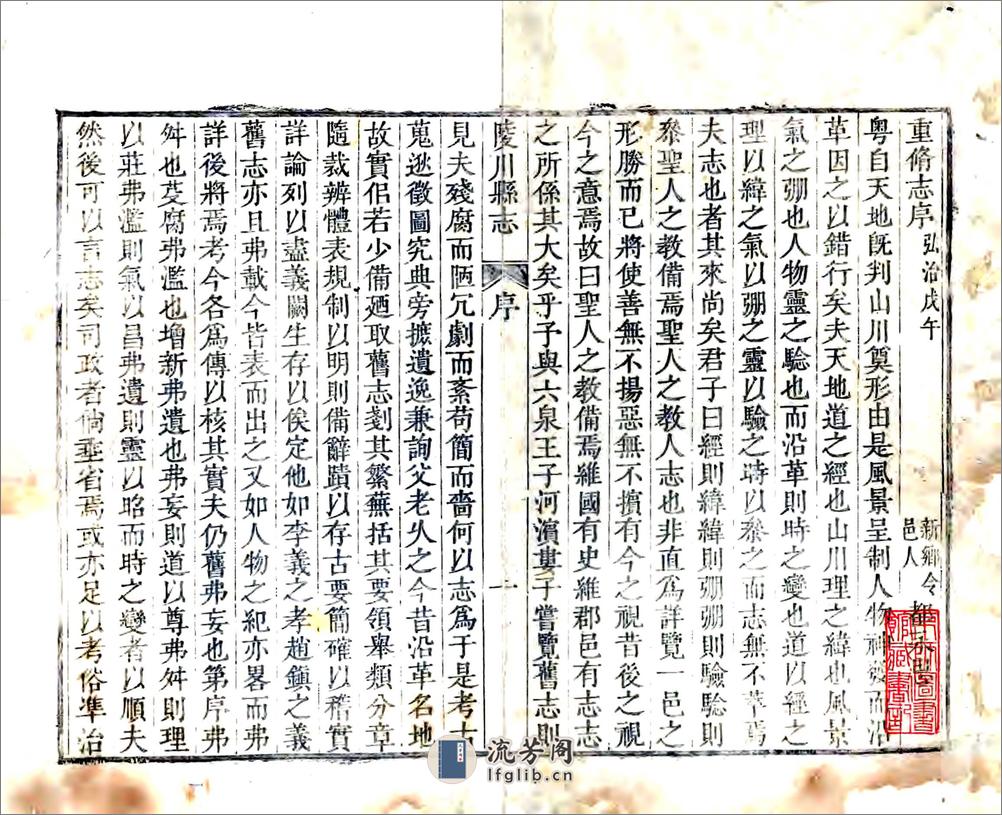 重脩志序弘治戊午
新鄉令
邑人
都
粤自天地旣判山川奠形由是風景呈制人物神發而沿
革因之以錯行矣夫天地道之經也山川理之緯也風景
氣之弸也人物靈之驗也而沿革則時之變也道以經之
理以緯之氣以弸之靈以驗之時以叅之而志無不萃焉
夫志也者其來尚矣君子曰經則緯緯則弸弸則驗驗則
叅聖人之教備焉聖人之教人志也非直爲詳覽一邑之
形勝而已將使善無不揚惡無不擯有今之視昔後之視
今之意焉故曰聖人之教備焉維國有史維郡邑有志志
之所係其大矣乎予與六泉王子河濱婁子嘗覽舊志則
陵川縣志
序
一
見夫殘腐而陋冗劇而紊苟簡而嗇何以志爲于是考古
蒐逖徵圖究典旁摭遺逸兼詢父老乆之今昔沿革名地
故實佀若少備廼取舊志剗其繁蕪括其要領舉類分章
隨裁辨體表規制以明則備辭蹟以存古要簡確以稽實
詳論列以盡義闕生存以俟定他如李義之孝趙鎮之義
舊志亦且弗載今皆表而出之又如人物之紀亦畧而弗
詳後將焉考今各爲傳以核其實夫仍舊弗妄也第序弗
舛也芟腐弗濫也增新弗遺也弗妄則道以尊弗舛則理
以莊弗濫則氣以昌弗遺則靈以昭而時之變者以順夫
然後可以言志矣司政者倘垂省焉或亦足以考俗準治
流芳阁
lfglib.cn